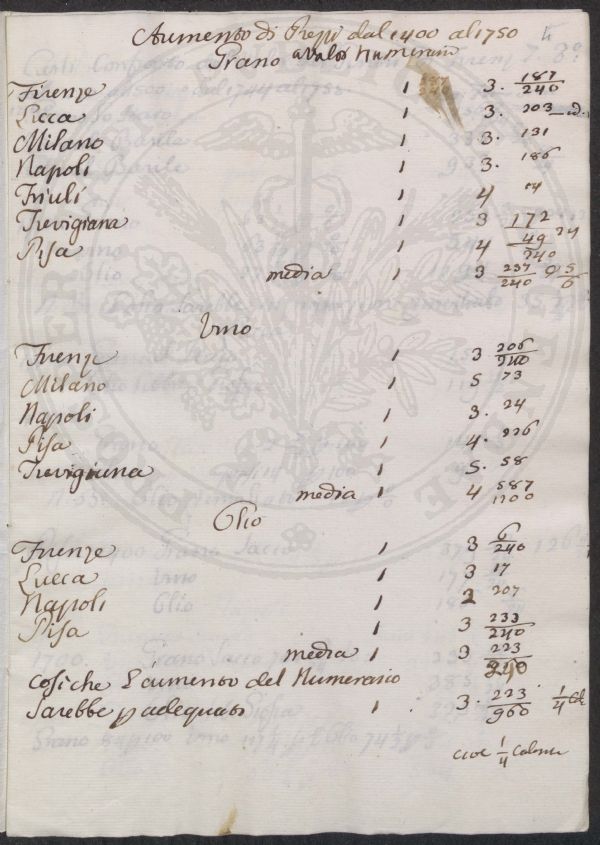 Aumento di Prezzi dal 1400 al 1750
Grano a valor Numerario
Firenze 1 3. 187/240
Lucca 1 3. 203 — id.
Milano 1 3. 131
Napoli 1 3. 186
Friuli 1 4
Trevigiana 1 3 172
Pisa 1 4 49/240
media 1 3 237/240
Vino
Firenze 1 3 206/240
Milano 1 5 73
Napoli 1 3. 24
Pisa 1 4. 226
Trevigiana 1 5. 58
media 1 4 587/1200
Olio
Firenze 1 3 6/240
Lucca 1 3 17
Napoli 1 2 207
Pisa 1 3 233/240
media 1 3 223/240
Cosiche l'aumento del Numerario
Sarebbe p adequato 1 3. 223/960 1/4
cioe 1/4